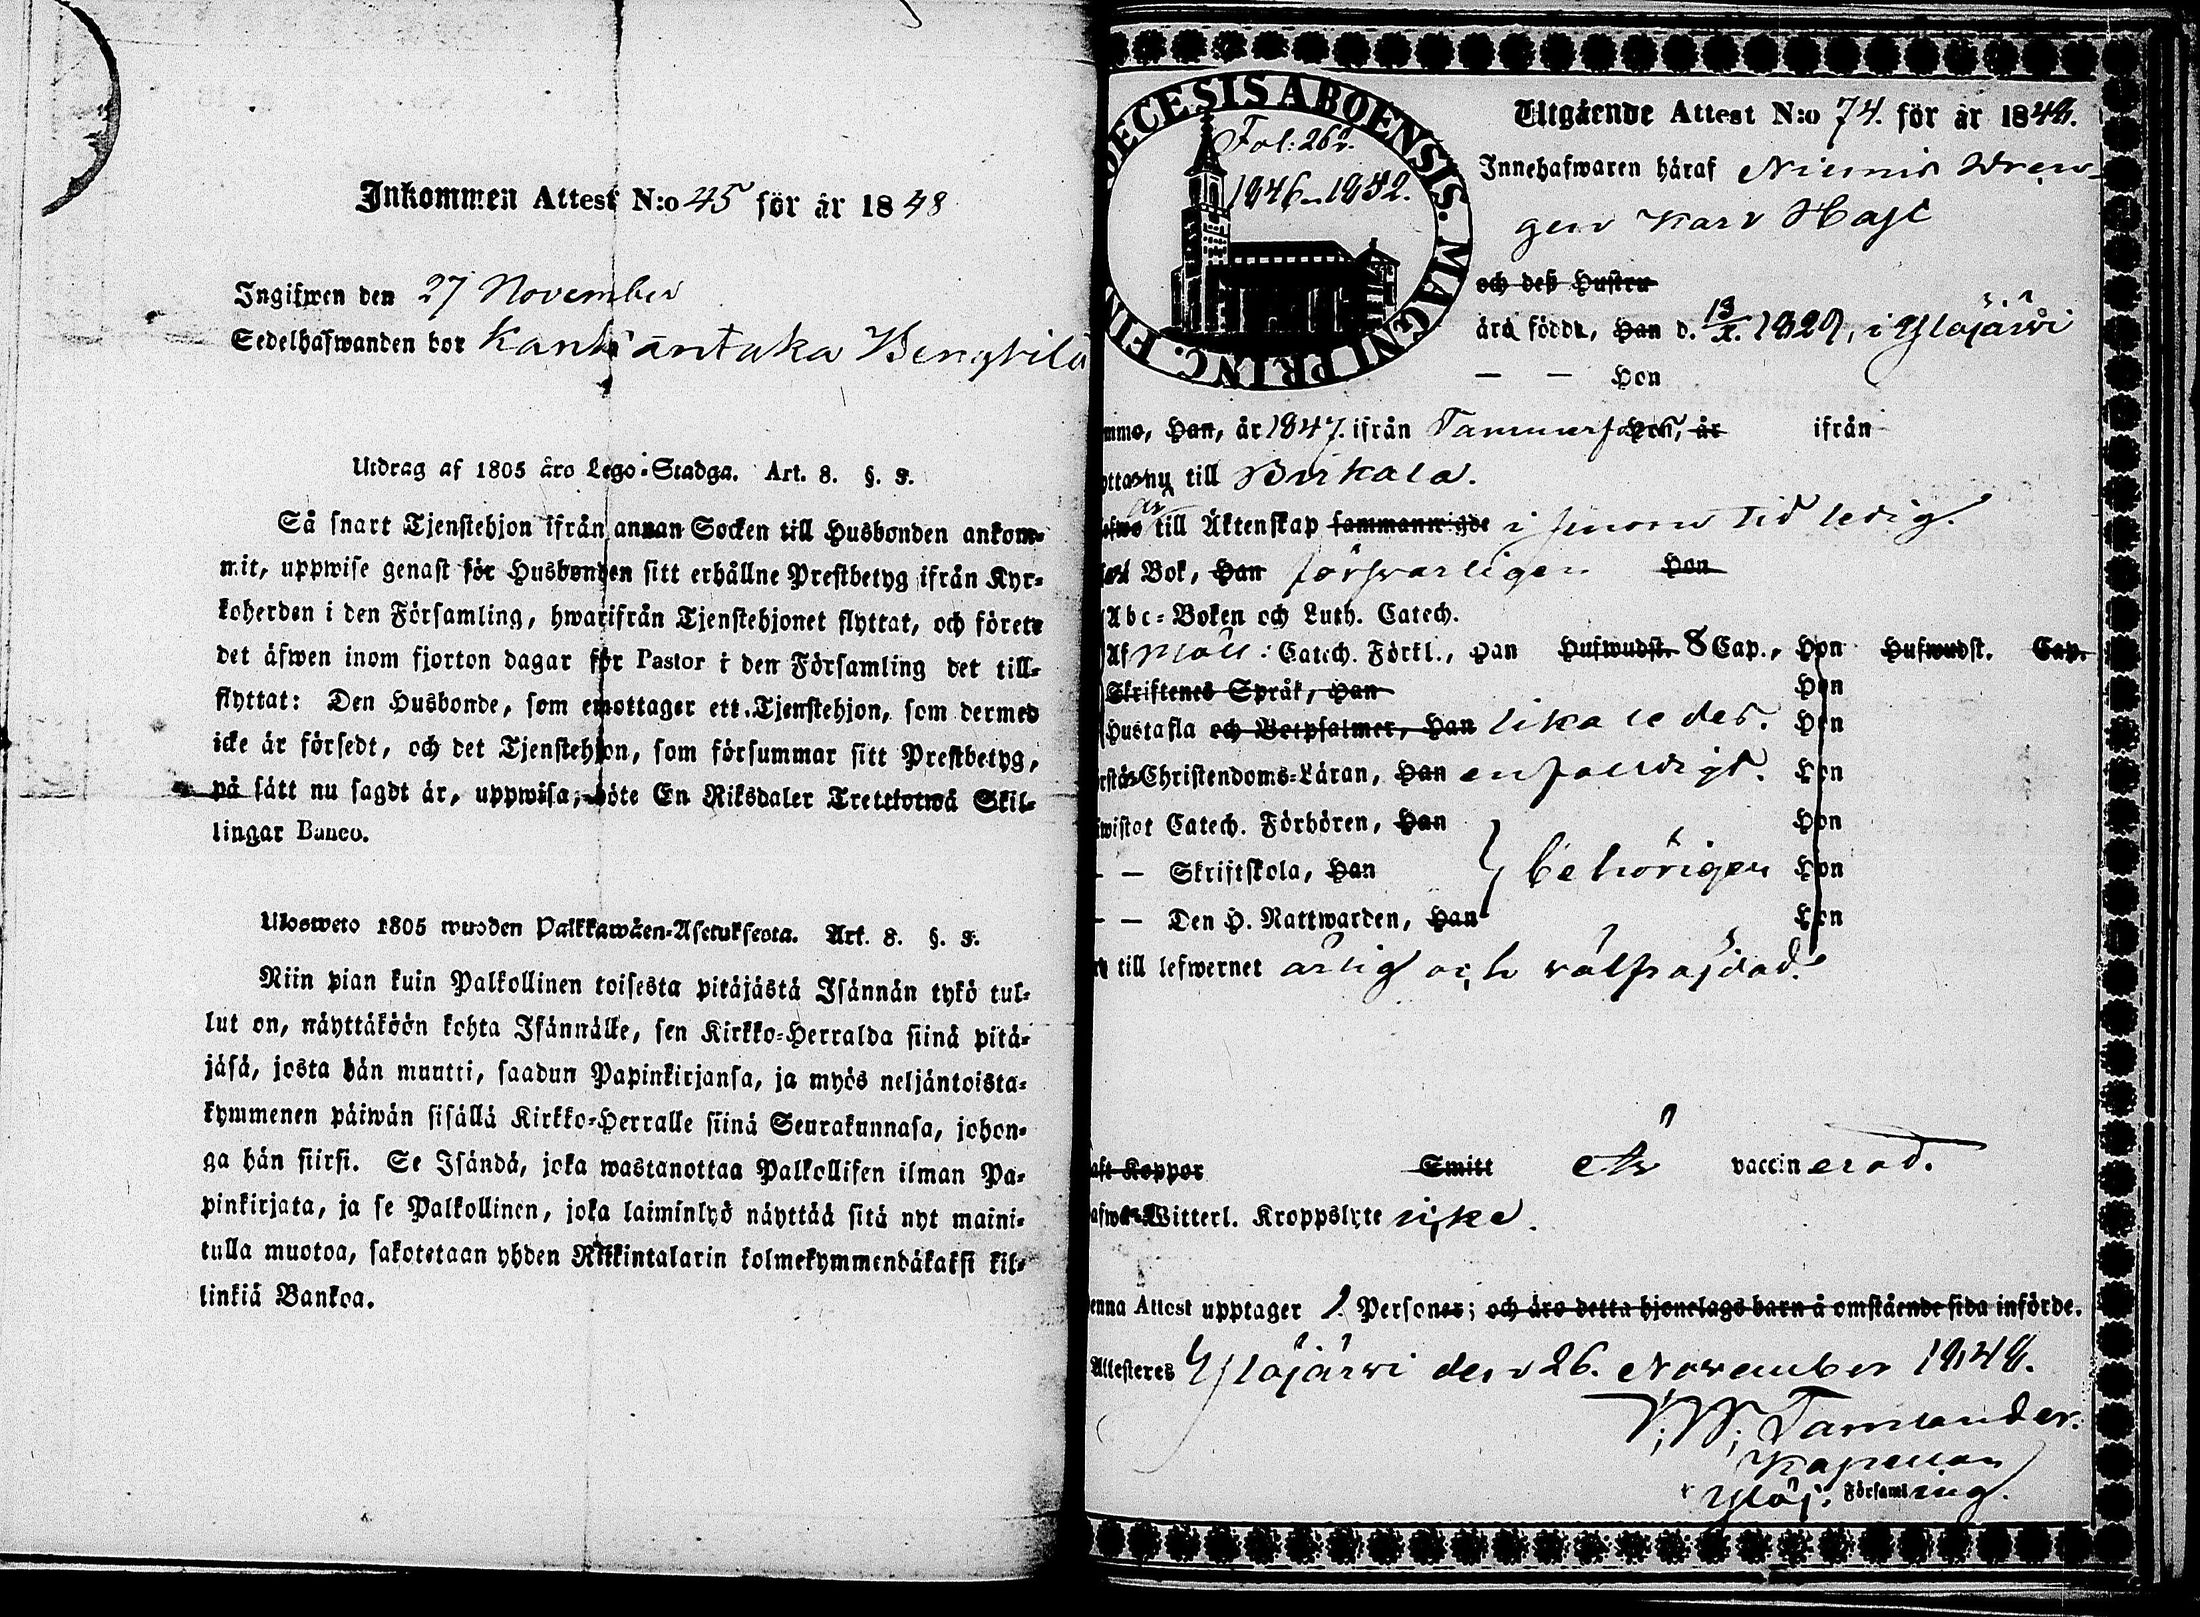 Inkommen Attest N:o 45 för år 1848
Ingifwen den 27 November
Sedelhafwanden bor
Utdrag af 1805 års Lego-Stadga. Art. 8. §. 3.
Så snart Tjenstehjon ifrån annan Socken till Husbonden ankom-
mit, uppwise genast för Husbonden sitt erhållne Prestbetyg ifrån Kyr-
koherden i den Församling, hwarifrån Tjenstehjonet flyttat, och förete
det äfwen inom fjorton dagar för Pastor i den Församling det till-
flyttat: Den Husbonde, som emottager ett Tjenstehjon, som dermed
icke är försedt, och det Tjenstehjon, som försummar sitt Prestbetyg,
på sätt nu sagdt är, uppwisa, böte En Riksdaler Trettiotwå Skil-
lingar Banco.
Ulosweto 1805 wuoden Palkkawäen-Asetuksesta. Art. 8. §. 3.
Niin pian kuin Palkollinen toisesta pitäjästä Isännän tykö tul-
lut on, näyttäköön kohta Isännälle, sen Kirkko-Herralda siinä pitä-
jäsä, josta hän muutti, saadun Papinkirjansa, ja myös neljäntoista-
kymmenen päiwän sisällä Kirkko-Herralle siinä Seurakunnasa, johon-
ga hän siirsi. Se Isändä, joka wastanottaa Palkollisen ilman Pa-
pinkirjata, ja se Palkollinen, joka laiminlyö näyttää sitä nyt maini-
tulla muotoa, sakotetaan yhden Riikintalarin kolmekymmendäkaksi kil-
linkiä Bankoa.
DECESIS ABOENSIS. MAGNI PRINC. FIN
Fol: 262.
1846-1852.
Utgående Attest N:o 74. för år 1848.
Innehafwaren häraf
gen Karl
och deß Hustru
äro födde, Han d. 13/X. 1829, i Ylöjärwi
— — Hon
mmo, Han, år 1847. ifrån Tammerfors Hon, år ifrån
ny till Birkala.
är
till Äktenskap sammanwigde i sinom tid ledig.
Bok, Han förswarligen Hon
Abc-Boken och Luth. Catech.
Af Möll: Catech. Förkl., Han Hufwudst. 8 Cap., Hon Hufwudst. Cap.
Skriftenes Språk, Han Hon
Hustafla och Botpsalmer, Han likaledes. Hon
Christendoms-Läran, Han enfaldigt. Hon
wistat Catech. Förhören, Han Hon
— — Skriftskola, Han behörigen Hon
— — Den H. Nattwarden, Han Hon
till lefwernet ärlig och wälfräjdad.
aft Koppor Smitt är vaccinerad.
Witterl. Kroppslyte icke.
enna Attest upptager 1. Personer; och äro detta hjonelags barn å omstående sida införde.
Attesteres Ylöjärwi den 26. November 1848.
Tamlander.
Kapellan
Ylöj. Församling.